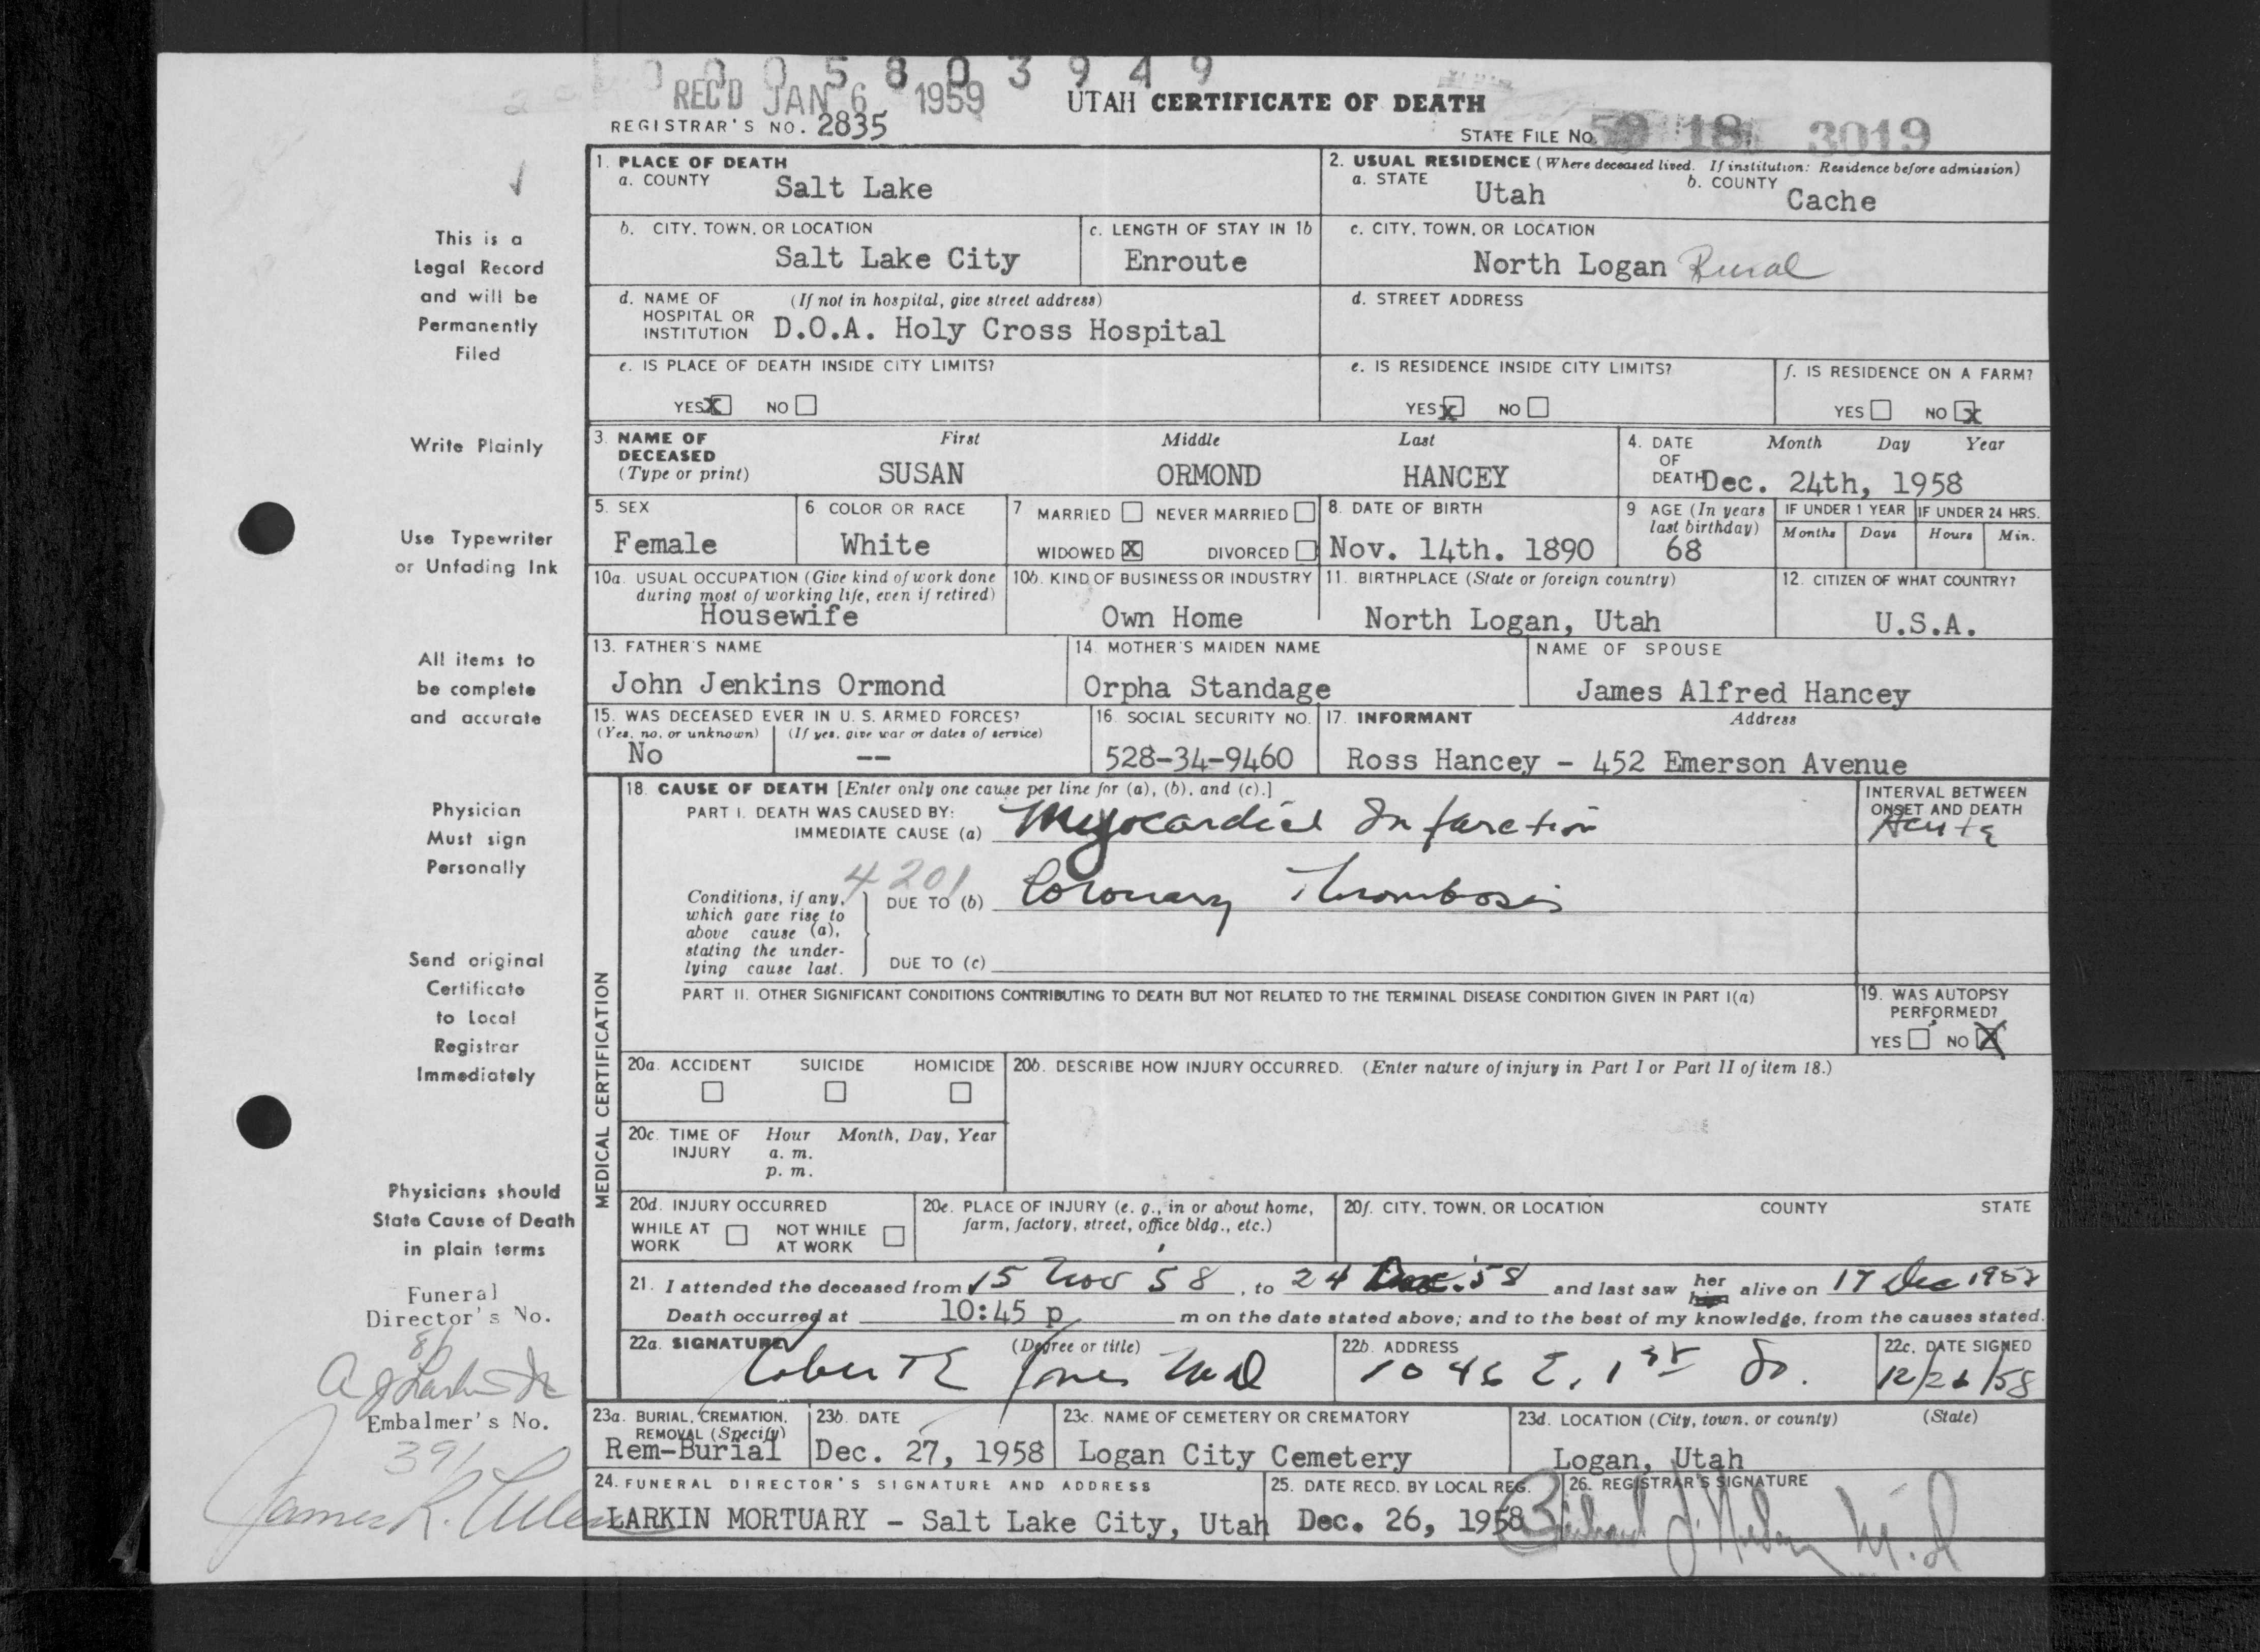 0 0 0 5 8 0 3 9 4 9
REC'D JAN 6 1959
UTAH CERTIFICATE OF DEATH
REGISTRAR'S NO. 2835
STATE FILE NO. 18 3019
This is a
Legal Record
and will be
Permanently
Filed
Write Plainly
Use Typewriter
or Unfading Ink
All items to
be complete
and accurate
Physician
Must sign
Personally
Send original
Certificate
to Local
Registrar
Immediately
Physicians should
State Cause of Death
in plain terms
Funeral
Director's No.
Embalmer's No.
391
1. PLACE OF DEATH
a. COUNTY Salt Lake
2. USUAL RESIDENCE (Where deceased lived. If institution: Residence before admission)
a. STATE Utah b. COUNTY Cache
b. CITY, TOWN, OR LOCATION Salt Lake City
c. LENGTH OF STAY IN 1b Enroute
c. CITY, TOWN, OR LOCATION North Logan Rural
d. NAME OF HOSPITAL OR INSTITUTION (If not in hospital, give street address) D.O.A. Holy Cross Hospital
d. STREET ADDRESS
e. IS PLACE OF DEATH INSIDE CITY LIMITS?
YES X NO
e. IS RESIDENCE INSIDE CITY LIMITS?
YES X NO
f. IS RESIDENCE ON A FARM?
YES NO X
3. NAME OF DECEASED (Type or print) First Middle Last
SUSAN ORMOND HANCEY
4. DATE OF DEATH Month Day Year
Dec. 24th, 1958
5. SEX Female
6 COLOR OR RACE White
7 MARRIED NEVER MARRIED
WIDOWED X DIVORCED
8. DATE OF BIRTH Nov. 14th. 1890
9 AGE (In years last birthday) 68
IF UNDER 1 YEAR Months Days
IF UNDER 24 HRS. Hours Min.
10a. USUAL OCCUPATION (Give kind of work done during most of working life, even if retired) Housewife
10b. KIND OF BUSINESS OR INDUSTRY Own Home
11. BIRTHPLACE (State or foreign country) North Logan, Utah
12. CITIZEN OF WHAT COUNTRY? U.S.A.
13. FATHER'S NAME John Jenkins Ormond
14. MOTHER'S MAIDEN NAME Orpha Standage
NAME OF SPOUSE James Alfred Hancey
15. WAS DECEASED EVER IN U. S. ARMED FORCES?
(Yes, no, or unknown) (If yes, give war or dates of service)
No --
16. SOCIAL SECURITY NO. 528-34-9460
17. INFORMANT Address
Ross Hancey - 452 Emerson Avenue
MEDICAL CERTIFICATION
18. CAUSE OF DEATH [Enter only one cause per line for (a), (b), and (c).]
PART I. DEATH WAS CAUSED BY:
IMMEDIATE CAUSE (a) Myocardial Infarction
INTERVAL BETWEEN ONSET AND DEATH
Acute
4201
Conditions, if any, which gave rise to above cause (a), stating the underlying cause last.
DUE TO (b) Coronary Thrombosis
DUE TO (c)
PART II. OTHER SIGNIFICANT CONDITIONS CONTRIBUTING TO DEATH BUT NOT RELATED TO THE TERMINAL DISEASE CONDITION GIVEN IN PART I(a)
19. WAS AUTOPSY PERFORMED?
YES NO X
20a. ACCIDENT SUICIDE HOMICIDE
20b. DESCRIBE HOW INJURY OCCURRED. (Enter nature of injury in Part I or Part II of item 18.)
20c. TIME OF INJURY Hour Month, Day, Year
a. m.
p. m.
20d. INJURY OCCURRED
WHILE AT WORK NOT WHILE AT WORK
20e. PLACE OF INJURY (e. g., in or about home, farm, factory, street, office bldg., etc.)
20f. CITY, TOWN, OR LOCATION COUNTY STATE
21. I attended the deceased from 15 Nov 58, to 24 Dec. 58 and last saw her him alive on 17 Dec 1958
Death occurred at 10:45 p m on the date stated above; and to the best of my knowledge, from the causes stated.
22a. SIGNATURE (Degree or title)
Robert E Jones MD
22b. ADDRESS 1046 E. 1st So.
22c. DATE SIGNED 12/26/58
23a. BURIAL, CREMATION, REMOVAL (Specify) Rem-Burial
23b. DATE Dec. 27, 1958
23c. NAME OF CEMETERY OR CREMATORY Logan City Cemetery
23d. LOCATION (City, town, or county) (State) Logan, Utah
24. FUNERAL DIRECTOR'S SIGNATURE AND ADDRESS
LARKIN MORTUARY - Salt Lake City, Utah
25. DATE RECD. BY LOCAL REG. Dec. 26, 1958
26. REGISTRAR'S SIGNATURE